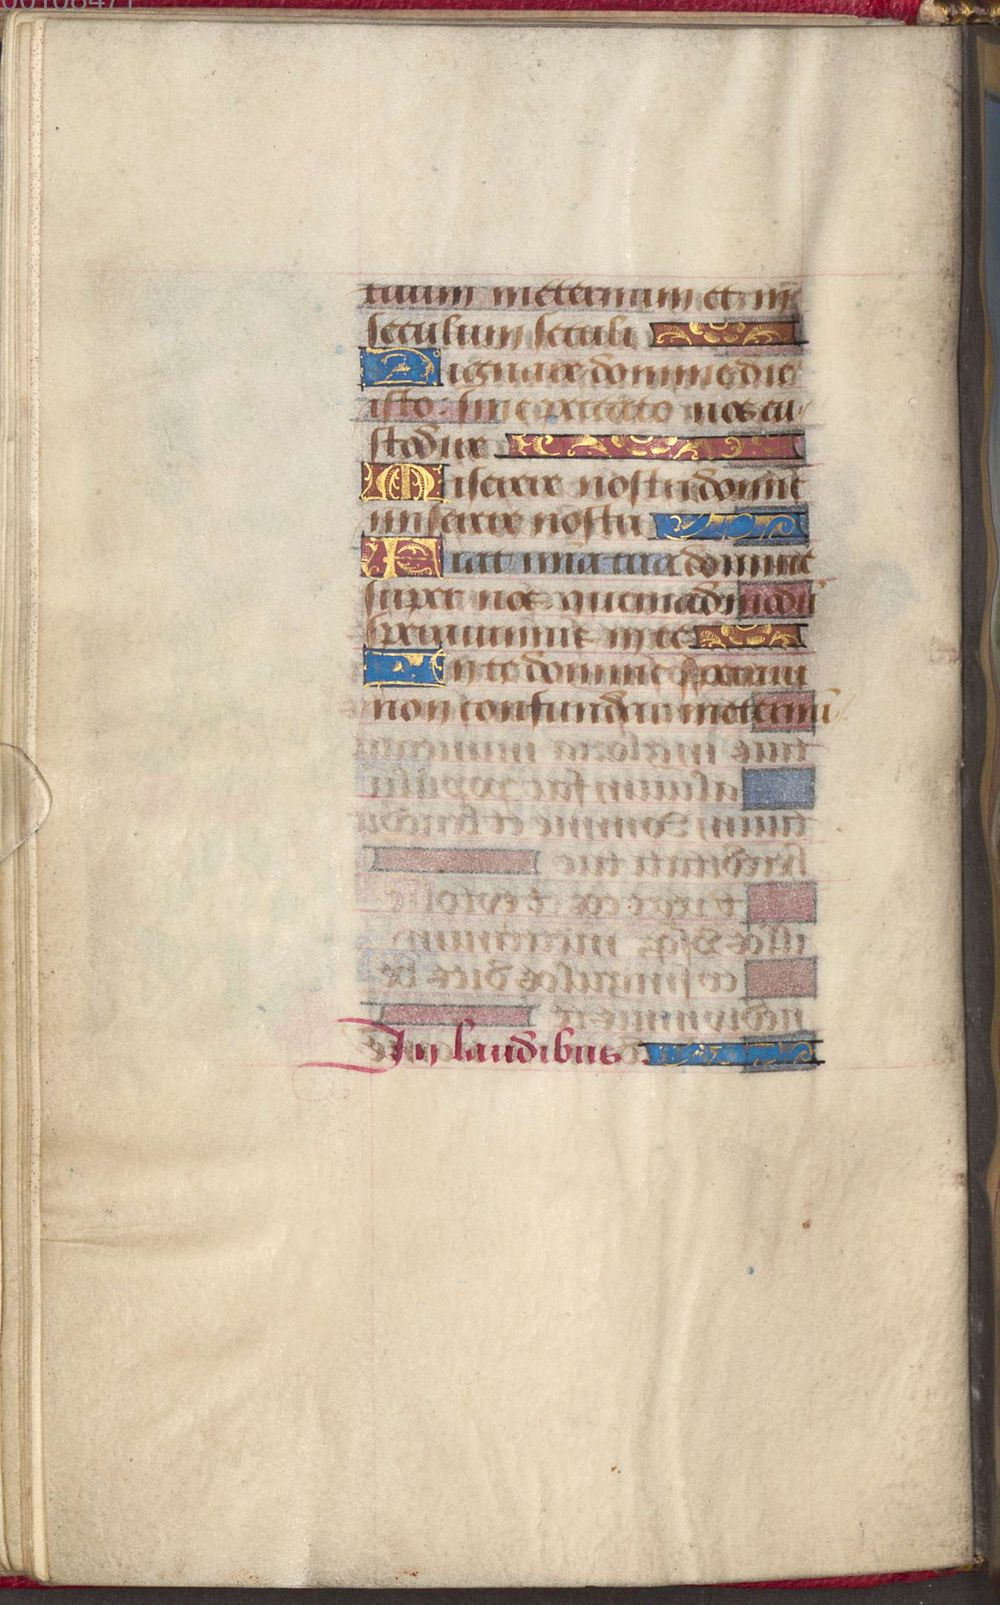 00108471
tuum ineternum et in
seculum seculi
Dignare domine die
isto sine peccato nos cu
stodire
Miserere nostri domine
miserere nostri
Fiat mīa tua domine
super nos quemadmodū
sperauimus in te
In te domine speraui
non confundar ineternū
In laudibus